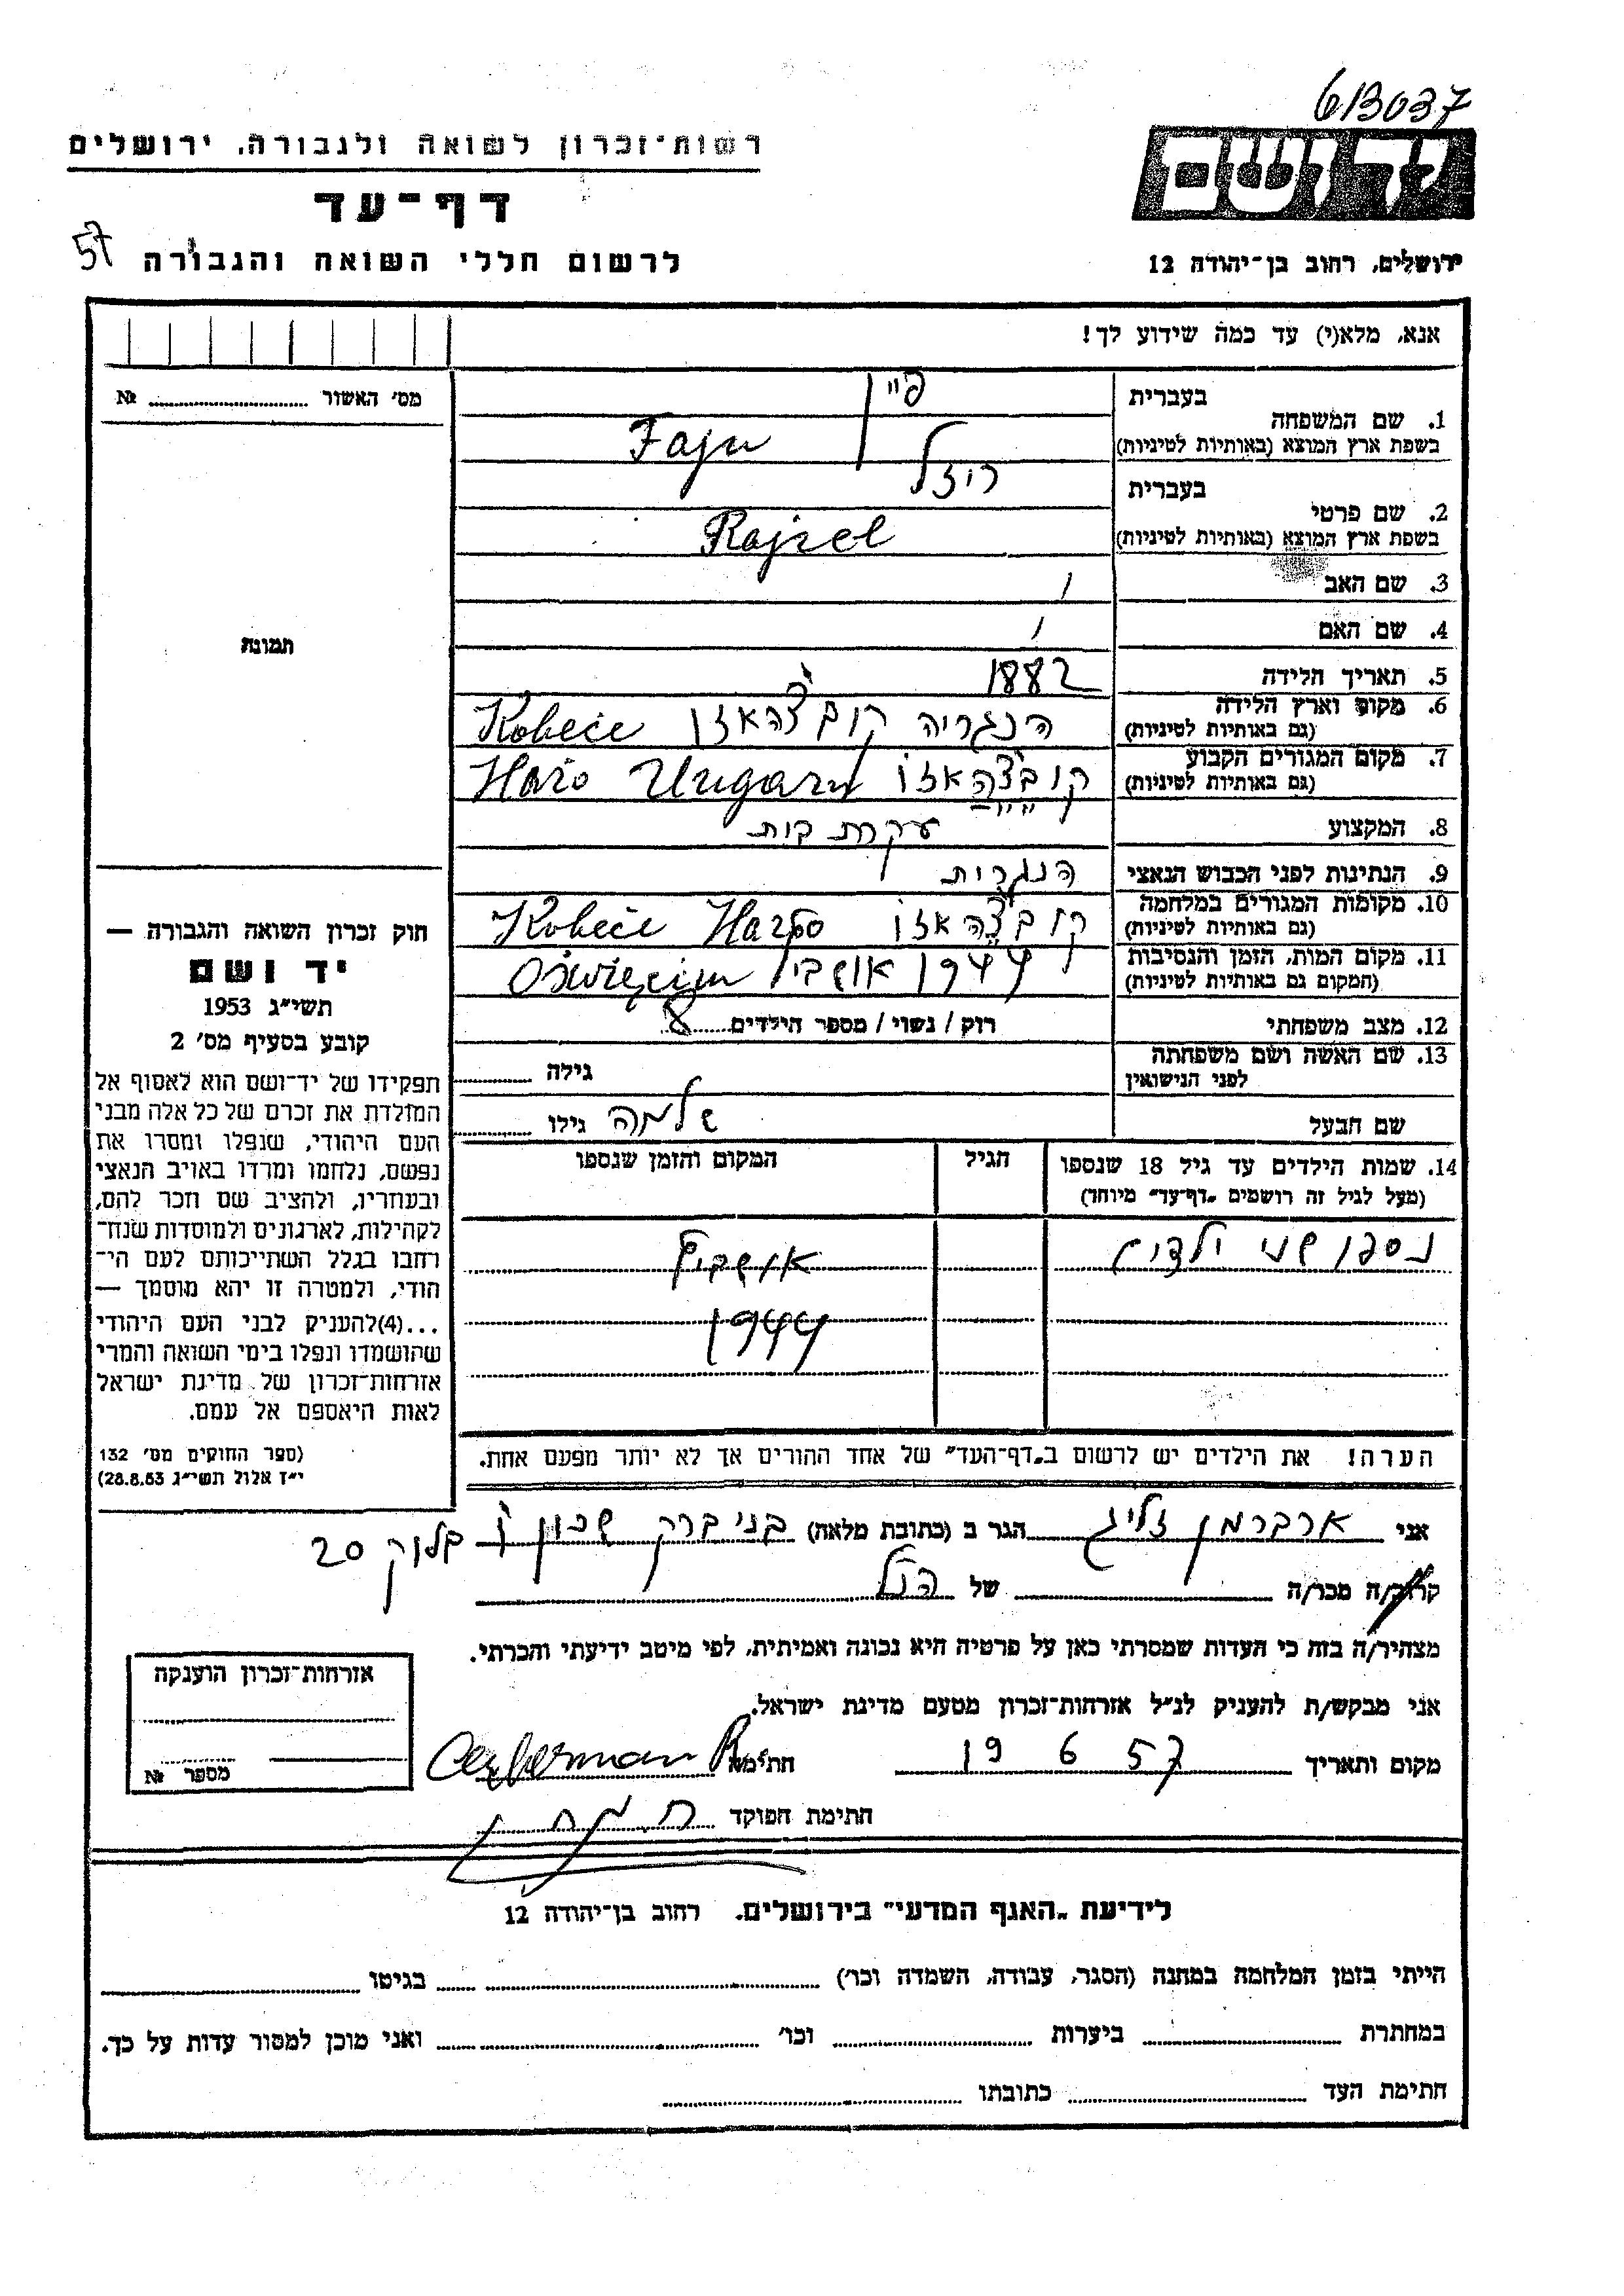 613037
יד ושם
רשות־זכרון לשואה ולגבורה, ירושלים
דף־עד
לרשום חללי השואה והגבורה
57
ירושלים, רחוב בן־יהודה 12
אנא, מלא(י) עד כמה שידוע לך!
מס' האשור № ........
1. שם המשפחה בעברית פיין
בשפת ארץ המוצא (באותיות לטיניות) Fajn
2. שם פרטי בעברית ריזל
בשפת ארץ המוצא (באותיות לטיניות) Rajzel
3. שם האב /
4. שם האם /
תמונה
5. תאריך הלידה 1882
6. מקום וארץ הלידה (גם באותיות לטיניות) הנגריה
7. מקום המגורים הקבוע (גם באותיות לטיניות) Ungarn
8. המקצוע עקרת בית
9. הנתינות לפני הכבוש הנאצי הנגרית
10. מקומות המגורים במלחמה (גם באותיות לטיניות)
11. מקום המות, הזמן והנסיבות (המקום גם באותיות לטיניות) 1944 Oświęcim
12. מצב משפחתי רוק / נשוי / מספר הילדים 8
13. שם האשה ושם משפחתה לפני הנישואין גילה ........
שם הבעל שלמה גילו ........
חוק זכרון השואה והגבורה —
יד ושם
תשי״ג 1953
קובע בסעיף מס' 2
תפקידו של יד־ושם הוא לאסוף אל
המולדת את זכרם של כל אלה מבני
העם היהודי, שנפלו ומסרו את
נפשם, נלחמו ומרדו באויב הנאצי
ובעוזריו, ולהציב שם וזכר להם,
לקהילות, לארגונים ולמוסדות שנח־
רחבו בגלל השתייכותם לעם הי־
הודי, ולמטרה זו יהא מוסמך —
...(4)להעניק לבני העם היהודי
שהושמדו ונפלו בימי השואה והמרי
אזרחות־זכרון של מדינת ישראל
לאות היאספם אל עמם.
(ספר החוקים מס' 132
י״ז אלול תשי״ג 28.8.53)
14. שמות הילדים עד גיל 18 שנספו הגיל המקום והזמן שנספו
(מעל לגיל זה רושמים „דף־עד״ מיוחד)
נספו שני ילדים אושביץ
1944
הערה! את הילדים יש לרשום ב„דף־העד״ של אחד ההורים אך לא יותר מפעם אחת.
אני ארברמן זליג הגר ב (כתובת מלאה) בני ברק שכון ו' בלוק 20
קרוב/ה מכר/ה ........ של הנ״ל
מצהיר/ה בזה כי העדות שמסרתי כאן על פרטיה היא נכונה ואמיתית, לפי מיטב ידיעתי והכרתי.
אני מבקש/ת להעניק לנ״ל אזרחות־זכרון מטעם מדינת ישראל.
מקום ותאריך 19 6 57 חתימה
חתימת הפוקד
אזרחות־זכרון הוענקה
מספר №
לידיעת „האגף המדעי״ בירושלים, רחוב בן־יהודה 12
הייתי בזמן המלחמה במחנה (הסגר, עבודה, השמדה וכו') ........ בגיטו ........
במחתרת ........ ביערות ........ וכו' ........ ואני מוכן למסור עדות על כך.
חתימת העד ........ כתובתו ........